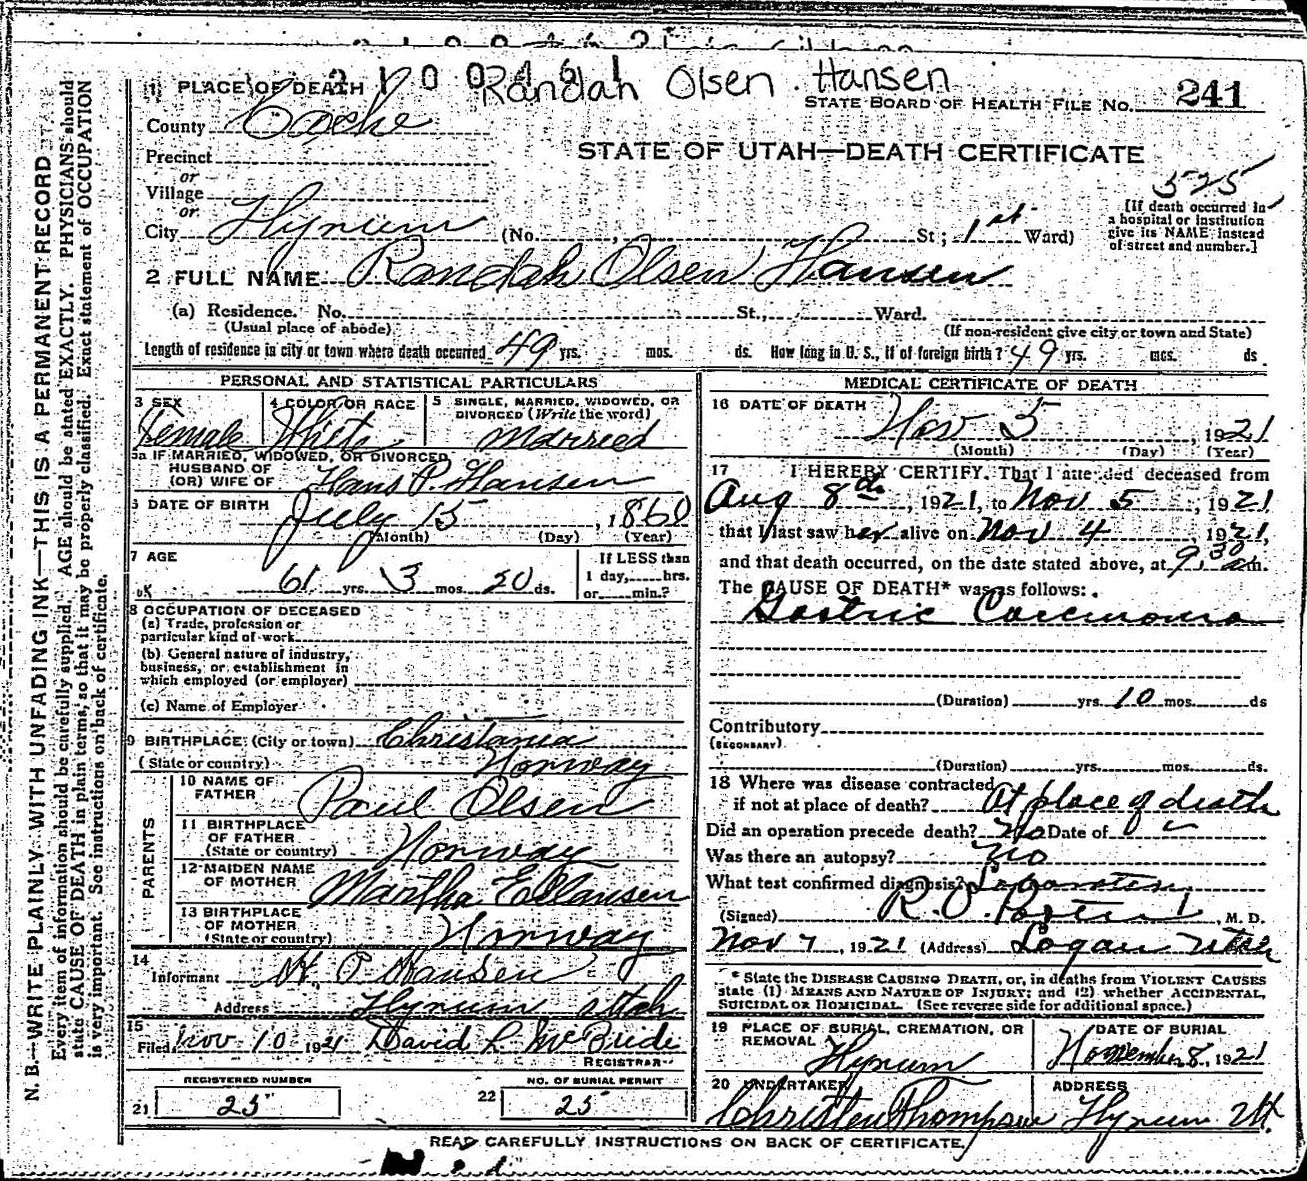 2100461
Randah Olsen Hansen
(1) PLACE OF DEATH
STATE BOARD OF HEALTH FILE No. 241
County Cache
STATE OF UTAH—DEATH CERTIFICATE
Precinct
or
Village
525
or
City Hyrum (No. St; 1st Ward)
[If death occurred in a hospital or institution give its NAME instead of street and number.]
2 FULL NAME Randah Olsen Hansen
(a) Residence. No. St., Ward.
(Usual place of abode) (If non-resident give city or town and State)
Length of residence in city or town where death occurred 49 yrs. mos. ds. How long in U. S., if of foreign birth? 49 yrs. mos. ds
PERSONAL AND STATISTICAL PARTICULARS
3 SEX Female
4 COLOR OR RACE White
5 SINGLE, MARRIED, WIDOWED, OR DIVORCED (Write the word) Married
5a IF MARRIED, WIDOWED, OR DIVORCED
HUSBAND OF
(OR) WIFE OF Hans P. Hansen
6 DATE OF BIRTH July 15, 1860
(Month) (Day) (Year)
7 AGE
61 yrs. 3 mos. 20 ds.
If LESS than
1 day, hrs.
or min.?
8 OCCUPATION OF DECEASED
(a) Trade, profession or
particular kind of work
(b) General nature of industry,
business, or establishment in
which employed (or employer)
(c) Name of Employer
9 BIRTHPLACE (City or town) Christania
(State or country) Norway
PARENTS
10 NAME OF FATHER Paul Olsen
11 BIRTHPLACE OF FATHER
(State or country) Norway
12 MAIDEN NAME OF MOTHER Martha
13 BIRTHPLACE OF MOTHER
(State or country) Norway
14
Informant H. P. Hansen
Address Hyrum Utah
15
Filed Nov 10 1921 David L McBride
REGISTRAR
REGISTERED NUMBER
21 25
NO. OF BURIAL PERMIT
22 25
MEDICAL CERTIFICATE OF DEATH
16 DATE OF DEATH Nov 5, 1921
(Month) (Day) (Year)
17 I HEREBY CERTIFY, That I attended deceased from
Aug 8th, 1921, to Nov 5, 1921
that I last saw her alive on Nov 4 1921,
and that death occurred, on the date stated above, at 9:30 am.
The CAUSE OF DEATH* was as follows:
Gastric Carcinoma
(Duration) yrs. 10 mos. ds
Contributory
(SECONDARY)
(Duration) yrs. mos. ds.
18 Where was disease contracted
if not at place of death? At place of death
Did an operation precede death? No Date of
Was there an autopsy? No
What test confirmed diagnosis?
(Signed) R. O. Porter, M. D.
Nov 7, 1921 (Address) Logan Utah
* State the DISEASE CAUSING DEATH, or, in deaths from VIOLENT CAUSES
state (1) MEANS AND NATURE OF INJURY; and (2) whether ACCIDENTAL,
SUICIDAL OR HOMICIDAL. (See reverse side for additional space.)
19 PLACE OF BURIAL, CREMATION, OR REMOVAL Hyrum
DATE OF BURIAL November 8, 1921
20 UNDERTAKER Christen Thompson
ADDRESS Hyrum Ut.
READ CAREFULLY INSTRUCTIONS ON BACK OF CERTIFICATE.
N. B.—WRITE PLAINLY WITH UNFADING INK—THIS IS A PERMANENT RECORD
Every item of information should be carefully supplied. AGE should be stated EXACTLY. PHYSICIANS should
state CAUSE OF DEATH in plain terms, so that it may be properly classified. Exact statement of OCCUPATION
is very important. See instructions on back of certificate.